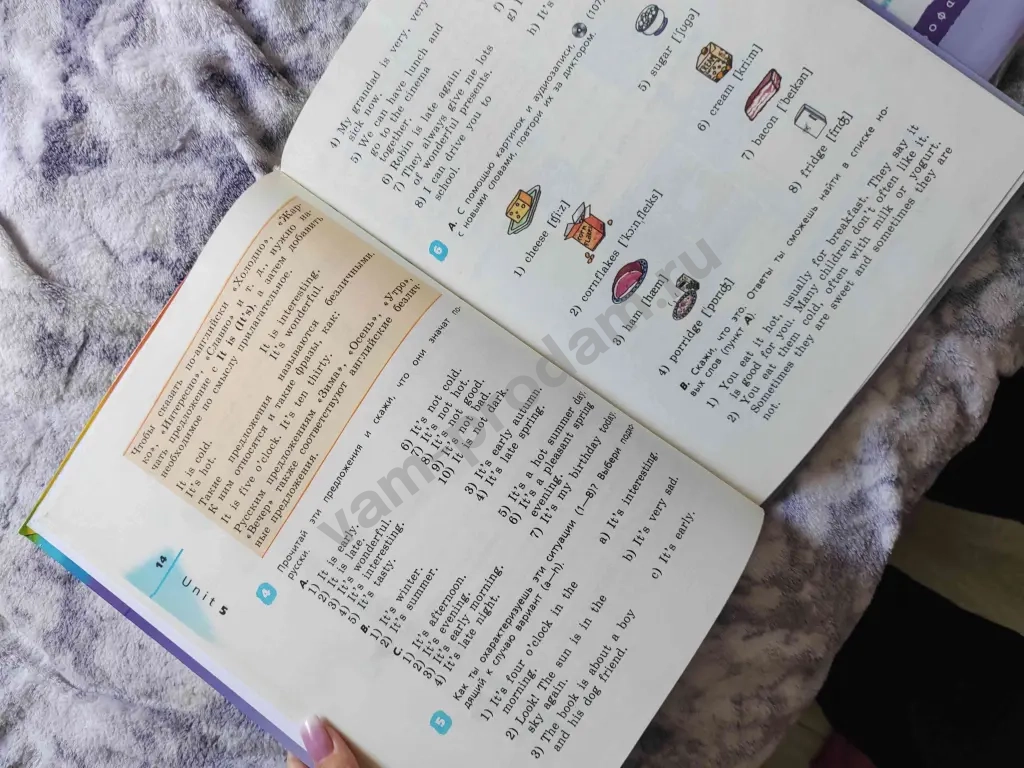 14
Unit 5
Чтобы сказать по-английски «Холодно», «Жар-
ко», «Интересно», «Славно» и т. д., нужно на-
чать предложение с It is (It's), а затем добавить
необходимое по смыслу прилагательное.
It is cold. It is interesting.
It's hot. It's wonderful.
Такие предложения называются безличными.
К ним относятся и такие фразы, как:
It is five o'clock. It's ten thirty.
Русским предложениям «Зима», «Осень», «Утро»,
«Вечер» также соответствуют английские безлич-
ные предложения.
4 Прочитай эти предложения и скажи, что они значат по-
русски.
A.
1) It is early. 6) It's not cold.
2) It is late. 7) It's not hot.
3) It's wonderful. 8) It's not good.
4) It's interesting. 9) It's not bad.
5) It's tasty. 10) It's not dark.
B.
1) It's winter. 3) It's early autumn.
2) It's summer. 4) It's late spring.
C.
1) It's afternoon. 5) It's a hot summer day.
2) It's evening. 6) It's a pleasant spring
evening.
3) It's early morning. 7) It's my birthday today.
4) It's late night.
5 Как ты охарактеризуешь эти ситуации (1—8)? Выбери подхо-
дящий к случаю вариант (a—h).
1) It's four o'clock in the a) It's interesting.
morning.
2) Look! The sun is in the b) It's very sad.
sky again.
3) The book is about a boy c) It's early.
and his dog friend.
4) My grandad is very, very
sick now.
5) We can have lunch and f)
go to the cinema g) I
together. h) It's
6) Robin is late again.
7) They always give me lots
of wonderful presents.
8) I can drive you to
school.
6 A. С помощью картинок и аудиозаписи, (107)
с новыми словами, повтори их за диктором.
1) cheese [tʃi:z]
2) cornflakes [ˈkɔ:nfleɪks]
3) ham [hæm]
4) porridge [ˈpɒrɪdʒ]
5) sugar [ˈʃʊgə]
6) cream [kri:m]
7) bacon [ˈbeɪkən]
8) fridge [frɪdʒ]
B. Скажи, что это. Ответы ты сможешь найти в списке но-
вых слов (пункт A).
1) You eat it hot, usually for breakfast. They say it
is good for you. Many children don't often like it.
2) You eat them cold, often with milk or yogurt.
Sometimes they are sweet and sometimes they are
not.
vam-prodam.ru